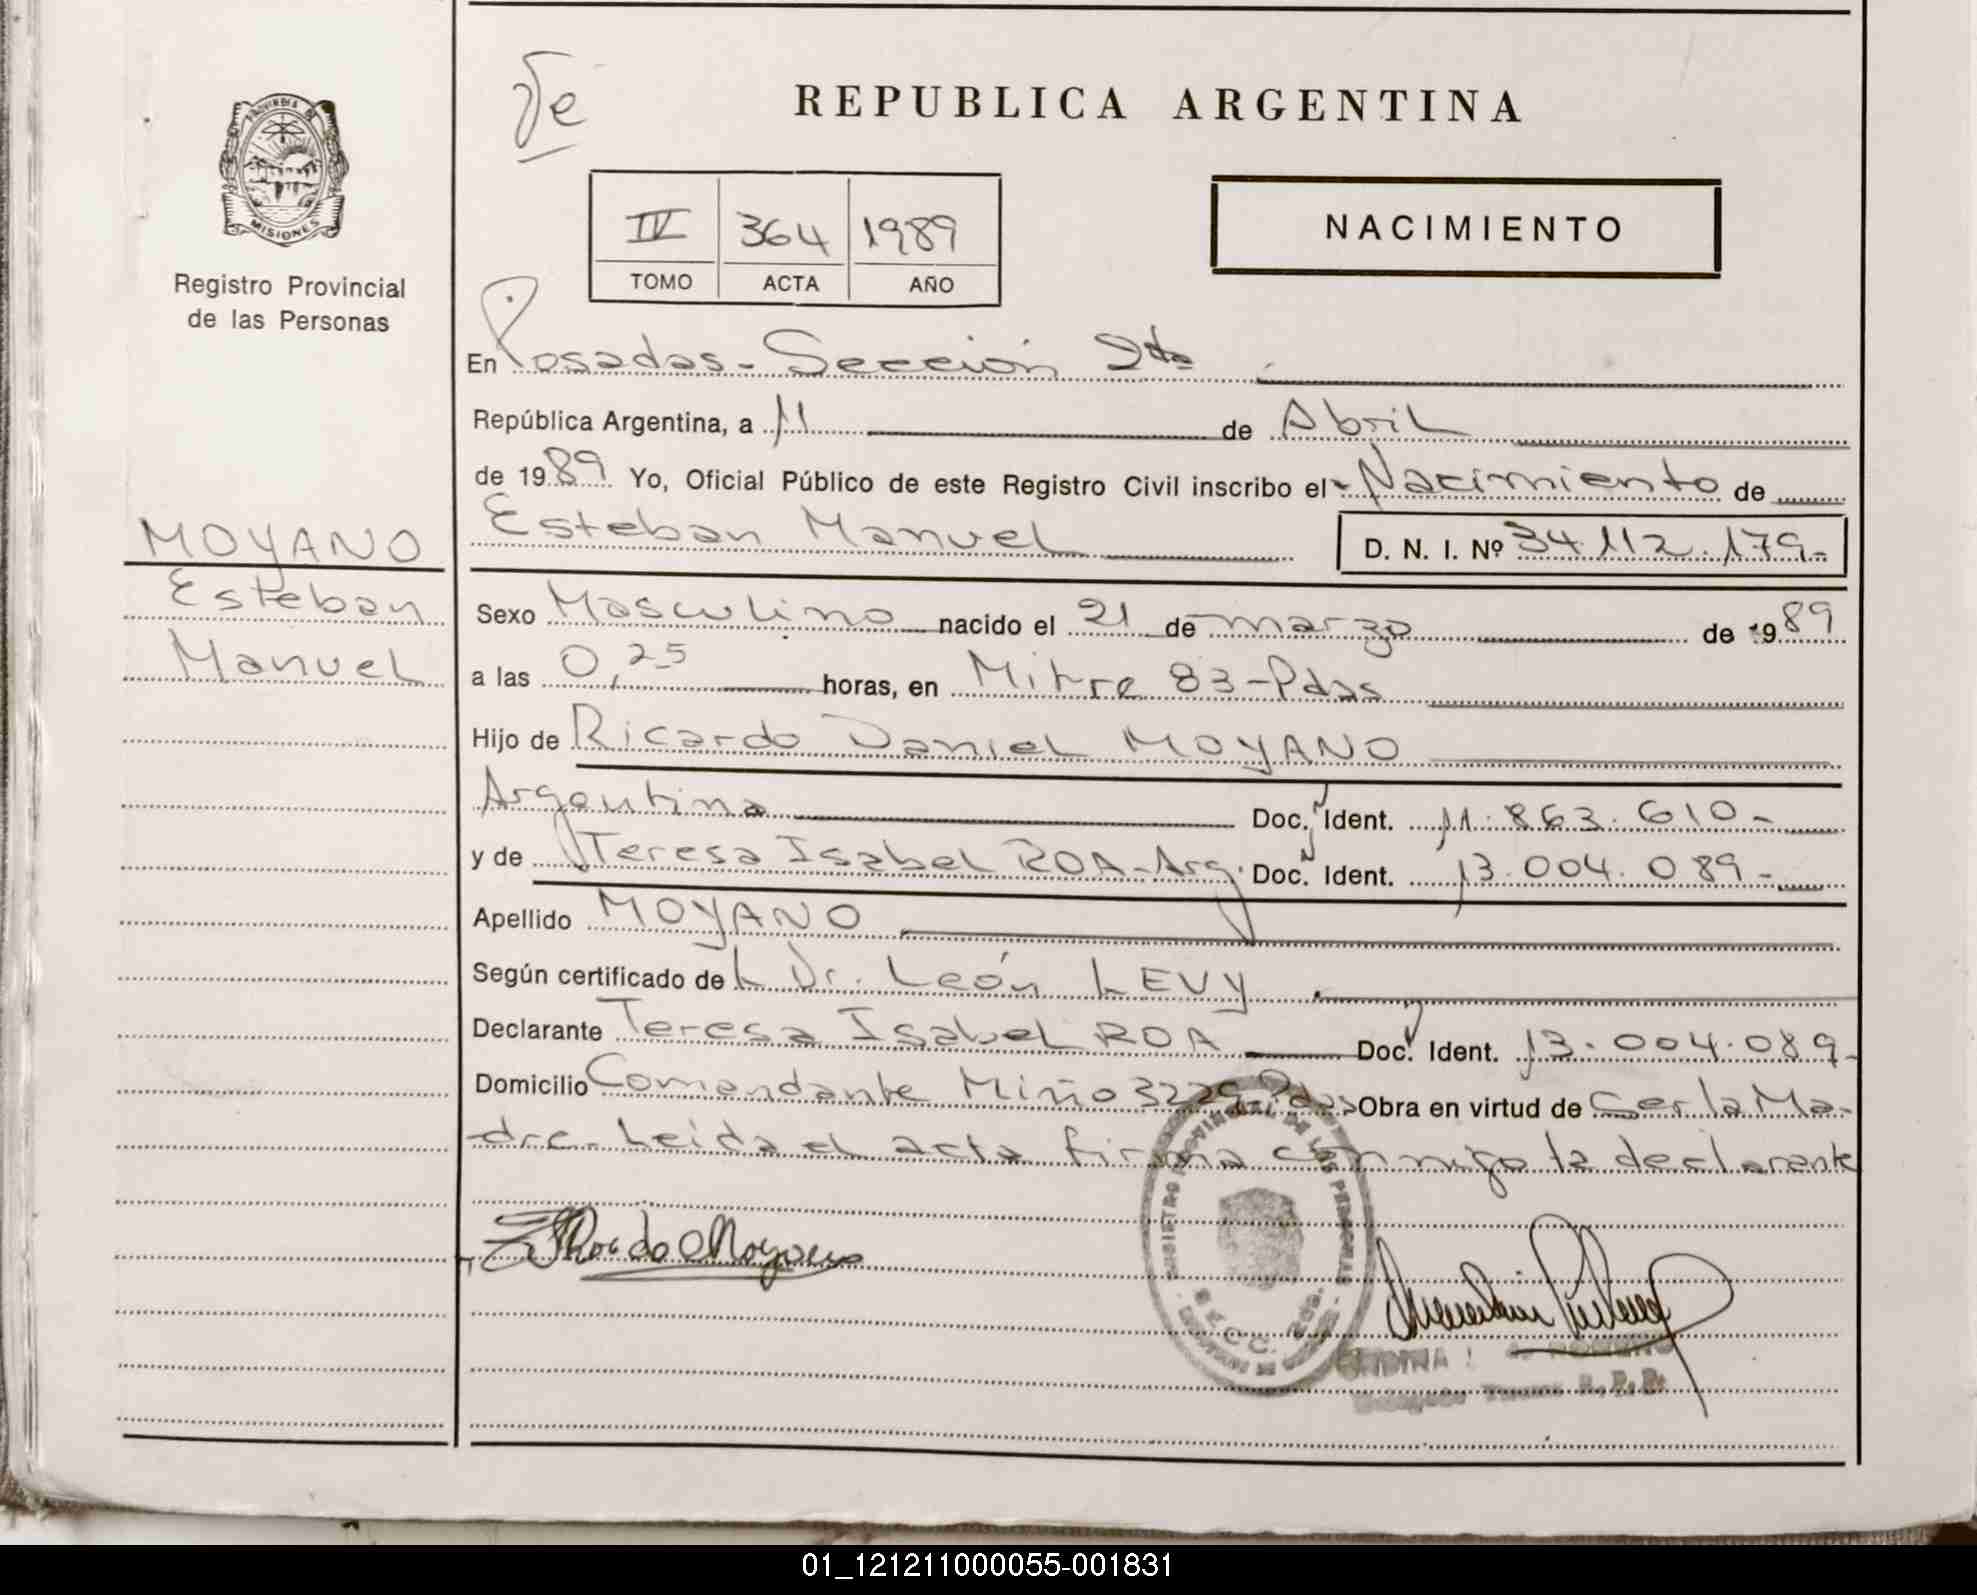 Te
REPUBLICA ARGENTINA
PROVINCIA DE
MISIONES
Registro Provincial
de las Personas
IV 364 1989
TOMO ACTA AÑO
NACIMIENTO
En Posadas - Sección 2da
República Argentina, a 11 de Abril
de 1989 Yo, Oficial Público de este Registro Civil inscribo el Nacimiento de
Esteban Manuel D. N. I. Nº 34.112.179-
MOYANO
Esteban
Manuel
Sexo Masculino nacido el 21 de marzo de 1989
a las 0,25 horas, en Mitre 83-Pdas
Hijo de Ricardo Daniel MOYANO
Argentina Doc. Ident. 11.863.610-
y de Teresa Isabel ROA-Arg. Doc. Ident. 13.004.089-
Apellido MOYANO
Según certificado de L Dr. León LEVY
Declarante Teresa Isabel ROA Doc. Ident. 13.004.089-
Domicilio Comandante Miño 3229-Pdas Obra en virtud de Ser la Ma-
dre. Leída el acta firma conmigo la declarante
REGISTRO PROVINCIAL DE LAS PERSONAS
de Moyano
R. P. P.
01_121211000055-001831